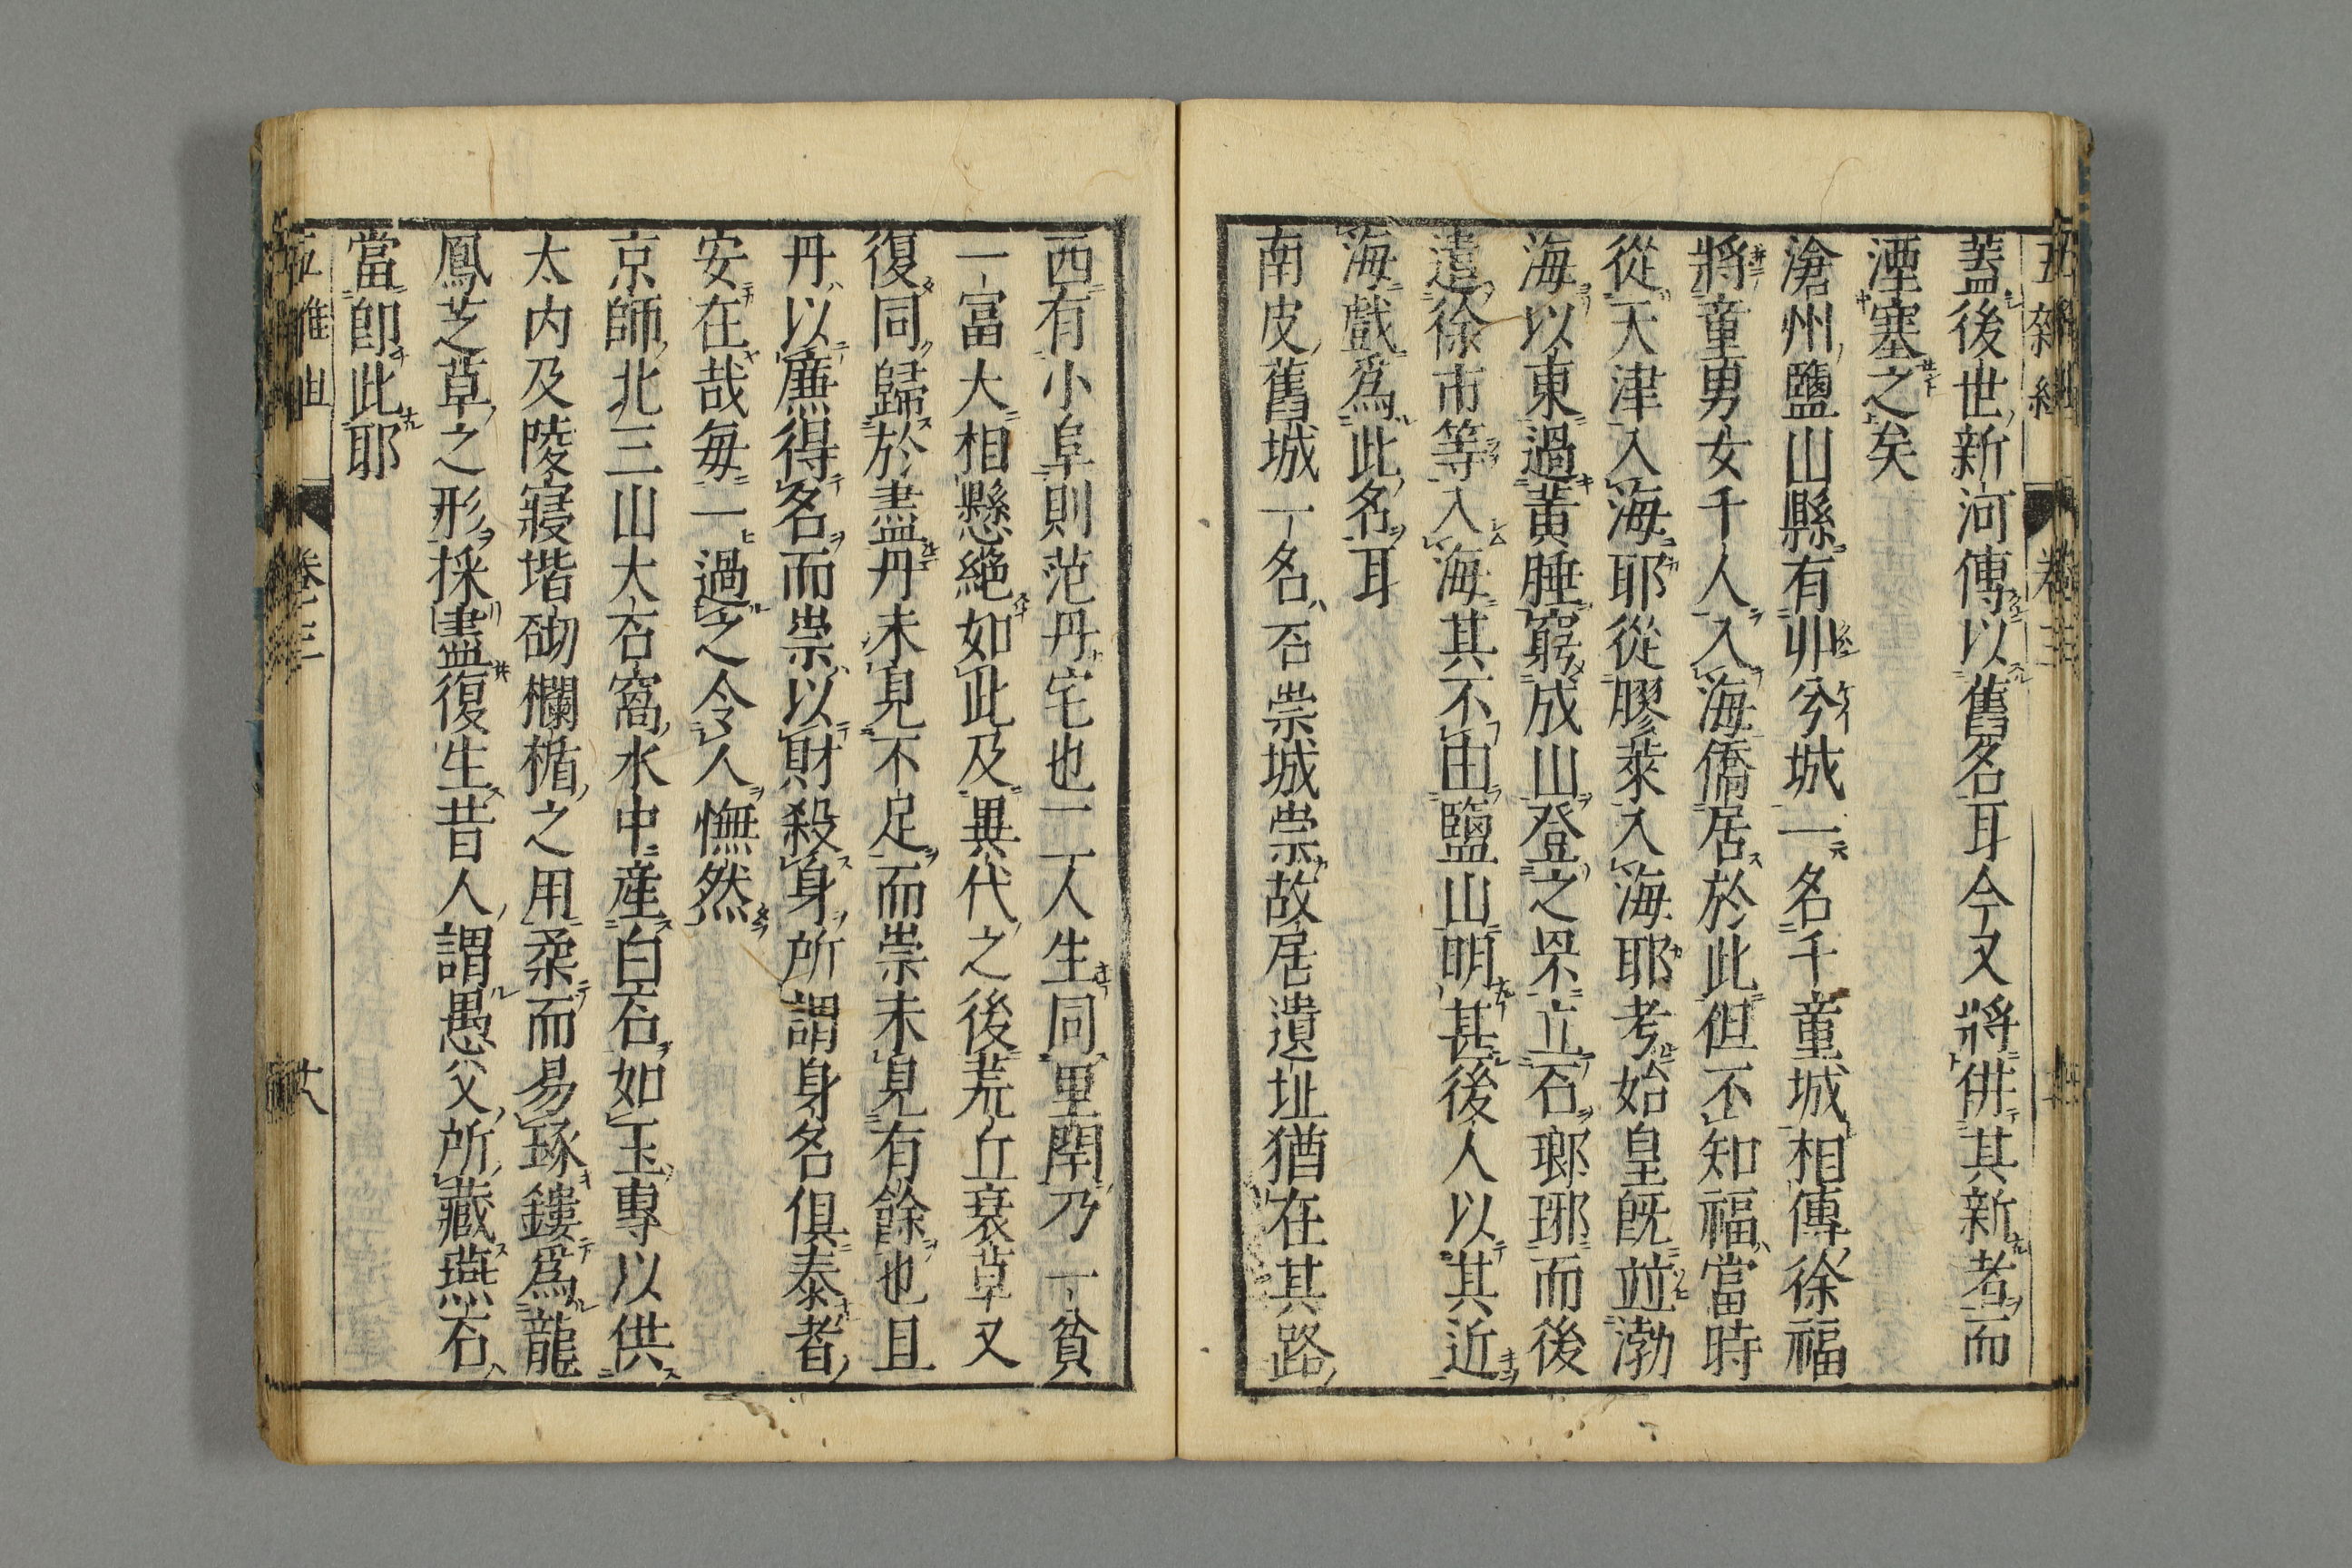 蓋後世新河傳以舊名耳今又將併其新者而
湮塞之矣
滄州鹽山縣有丱兮城一名千童城相傳徐福
將童男女千人入海僑居於此但不知福當時
從天津入海耶從膠萊入海耶考始皇既並渤
海以東過黃腄窮成山登之罘立石瑯琊而後
遣徐市等入海其不由鹽山明甚後人以其近
海戲爲此名耳
南皮舊城一名石崇城崇故居遺址猶在其路
西有小阜則范丹宅也二人生同里閈乃一貧
一富大相懸絕如此及異代之後荒丘衰草又
復同歸於盡丹未見不足而崇未見有餘也且
丹以廉得名而崇以財殺身所謂身名俱泰者
安在哉每一過之令人憮然
京師北三山大石窩水中產白石如玉專以供
大内及陵寢堦砌欄楯之用柔而易琢鏤爲龍
鳳芝草之形採盡復生昔人謂愚父所藏燕石
當即此耶
卷三